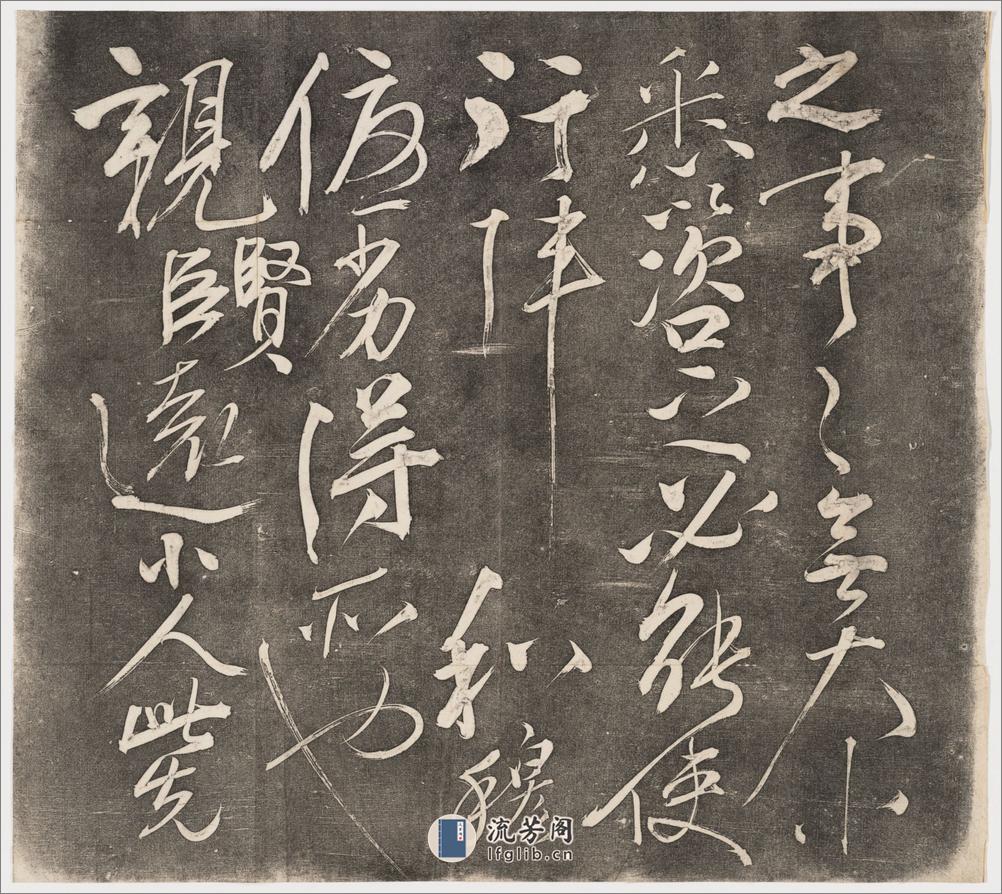 之事〻無大小
悉以咨之必能使
行陣和穆
優劣得所也
親賢臣遠小人此先
流芳阁
lfglib.cn